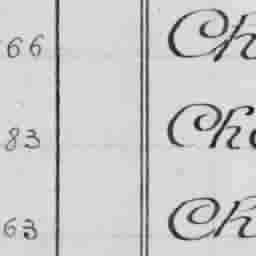 66 Ch
83 Ch
63 Ch